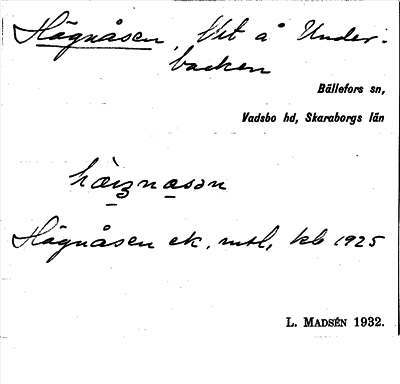 Högnåsen, Utt å Under-
backen
Bällefors sn,
Vadsbo hd, Skaraborgs län
Högnåsen ek, mtl, kb 1925
L. MADSÉN 1932.